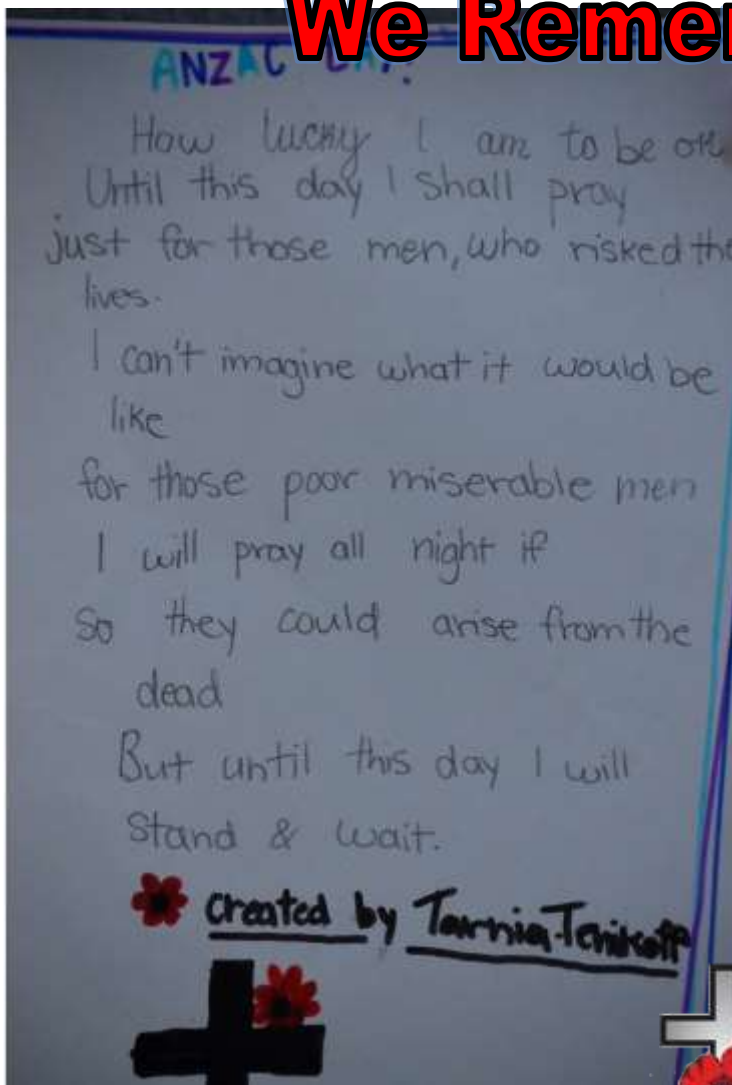 We Remem
ANZAC DAY!
How lucky I am to be
Until this day I shall pray
just for those men, who risked the
lives.
I can't imagine what it would be
like
for those poor miserable men
I will pray all night if
So they could arise from the
dead
But until this day I will
Stand & wait.
created by Tarnia